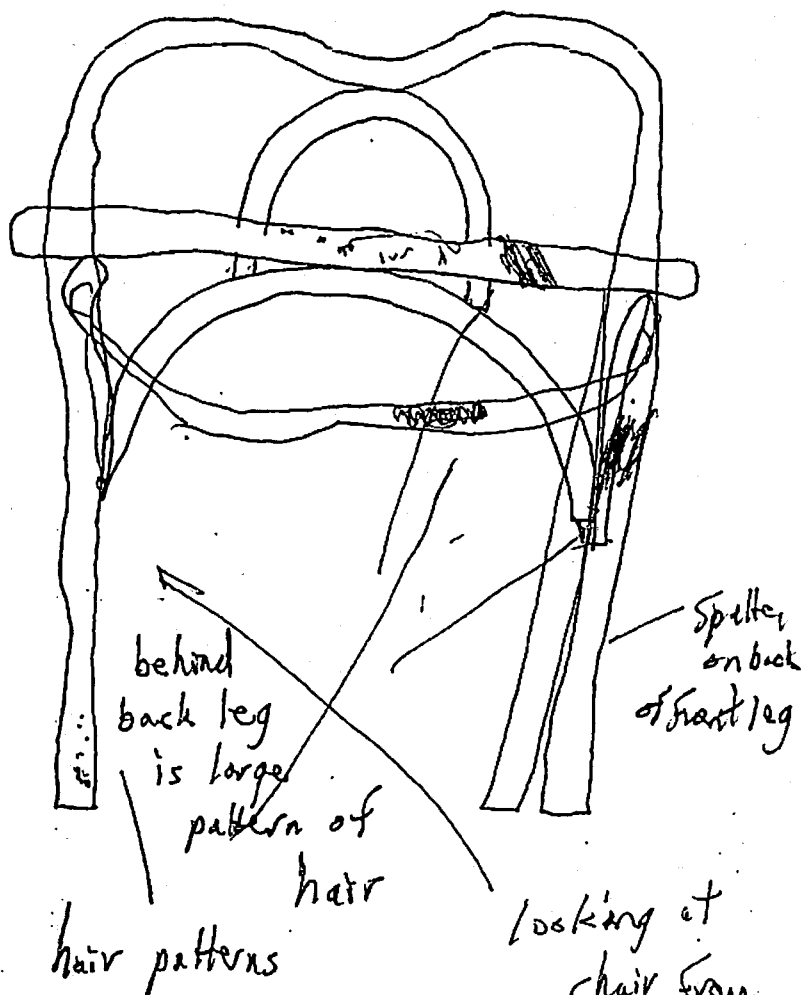 behind
back leg
is large
pattern of
hair
on back
of front leg
hair patterns
looking at
chair from